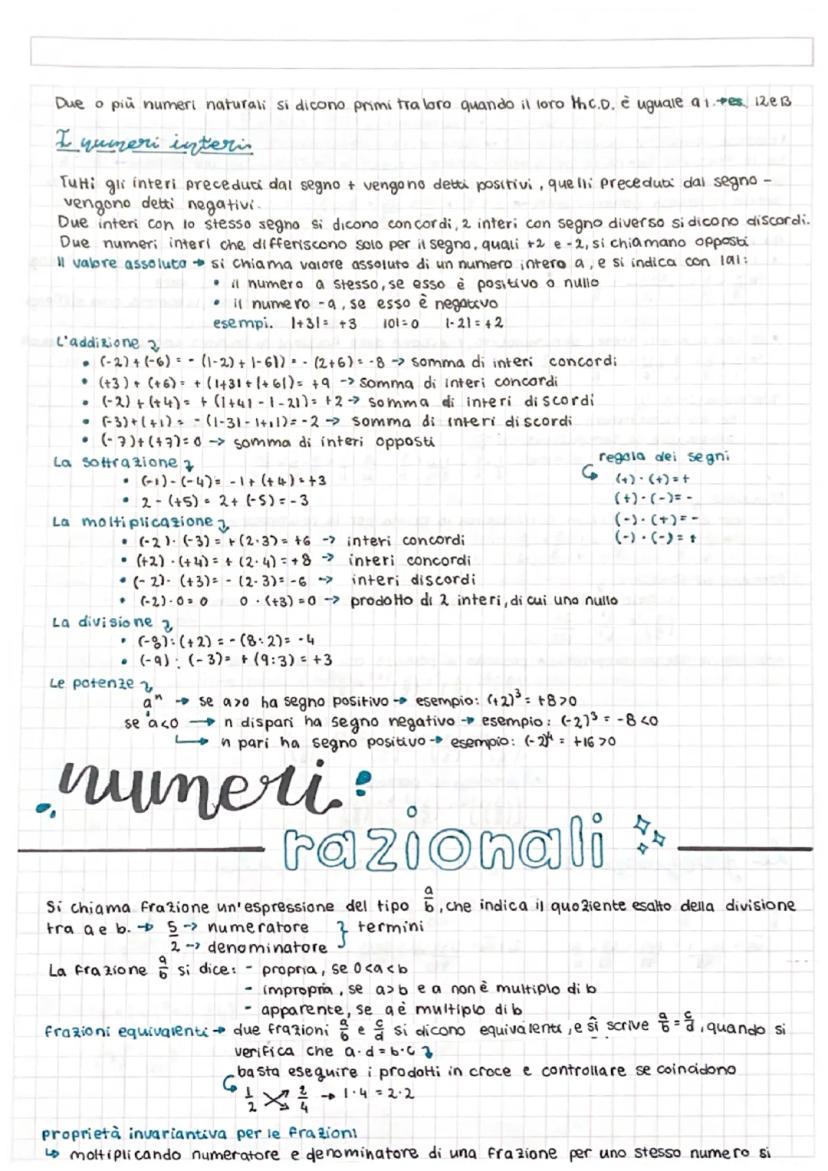 Due o più numeri naturali si dicono primi tra loro quando il loro M.C.D. è uguale a 1. → es. 12 e 13
I numeri interi
Tutti gli interi preceduti dal segno + vengono detti positivi, quelli preceduti dal segno -
vengono detti negativi.
Due interi con lo stesso segno si dicono concordi, 2 interi con segno diverso si dicono discordi.
Due numeri interi che differiscono solo per il segno, quali +2 e -2, si chiamano opposti
Il valore assoluto → si chiama valore assoluto di un numero intero a, e si indica con |a|:
• il numero a stesso, se esso è positivo o nullo
• il numero -a, se esso è negativo
esempi. |+3| = +3 |0| = 0 |-2| = +2
L'addizione
• (-2) + (-6) = - (|-2| + |-6|) = - (2+6) = -8 → somma di interi concordi
• (+3) + (+6) = + (|+3| + |+6|) = +9 → somma di interi concordi
• (-2) + (+4) = + (|+4| - |-2|) = +2 → somma di interi discordi
• (-3) + (+1) = - (|-3| - |+1|) = -2 → somma di interi discordi
• (-7) + (+7) = 0 → somma di interi opposti
La sottrazione
• (-1) - (-4) = -1 + (+4) = +3
• 2 - (+5) = 2 + (-5) = -3
regola dei segni
(+) · (+) = +
(+) · (-) = -
(-) · (+) = -
(-) · (-) = +
La moltiplicazione
• (-2) · (-3) = + (2·3) = +6 → interi concordi
• (+2) · (+4) = + (2·4) = +8 → interi concordi
• (-2) · (+3) = - (2·3) = -6 → interi discordi
• (-2) · 0 = 0 0 · (+3) = 0 → prodotto di 2 interi, di cui uno nullo
La divisione
• (-8) : (+2) = - (8:2) = -4
• (-9) : (-3) = + (9:3) = +3
Le potenze
aⁿ → se a>0 ha segno positivo → esempio: (+2)³ = +8>0
se a<0 → n dispari ha segno negativo → esempio: (-2)³ = -8<0
→ n pari ha segno positivo → esempio: (-2)⁴ = +16>0
numeri
razionali
Si chiama frazione un'espressione del tipo a/b, che indica il quoziente esatto della divisione
tra a e b. → 5 → numeratore } termini
2 → denominatore
La frazione a/b si dice: - propria, se 0<a<b
- impropria, se a>b e a non è multiplo di b
- apparente, se a è multiplo di b
frazioni equivalenti → due frazioni a/b e c/d si dicono equivalenti, e si scrive a/b = c/d, quando si
verifica che a·d = b·c
basta eseguire i prodotti in croce e controllare se coincidono
1/2 2/4 → 1·4 = 2·2
proprietà invariantiva per le frazioni
↳ moltiplicando numeratore e denominatore di una frazione per uno stesso numero si